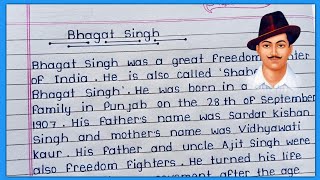 Bhagat Singh
Bhagat Singh was a great Freedom
of India. He is also called 'Shah
Bhagat Singh'. He was born in a
family in Punjab on the 28th of September
1907. His father's name was Sardar Kishan
Singh and mother's name was Vidhyawati
Kaur. His father and uncle Ajit Singh were
also freedom fighters. He turned his life
after the age